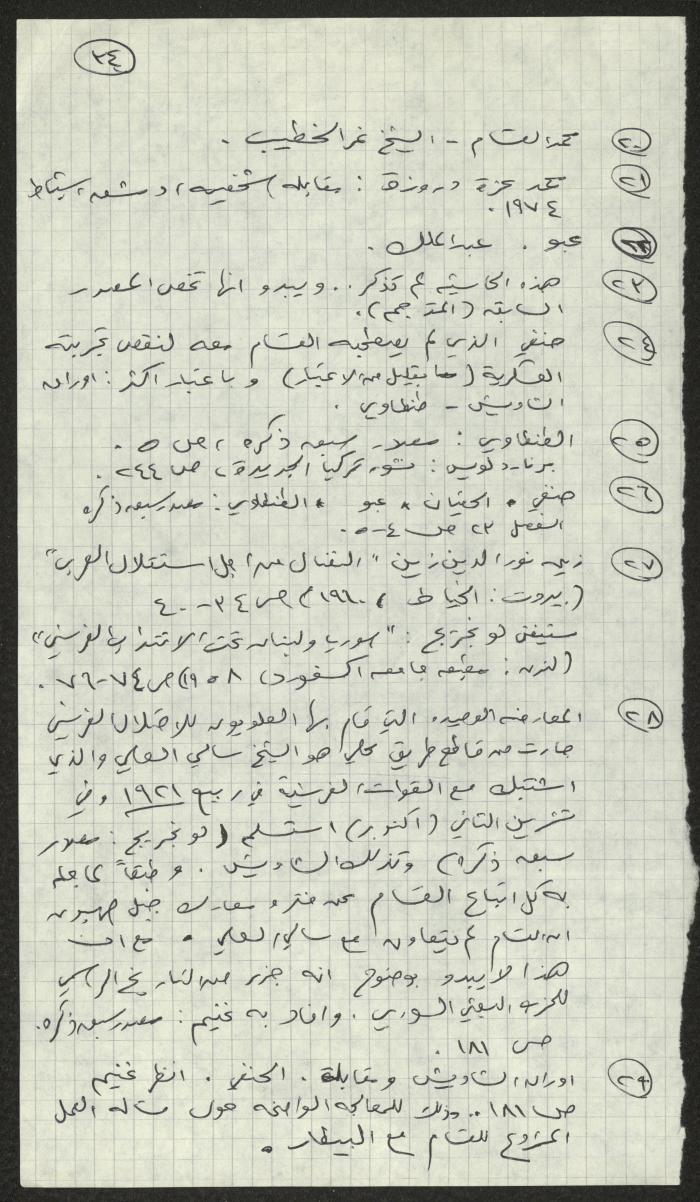 ٣٤
٢٠ محمد القسام - الشيخ نمر الخطيب .
٢١ محمد عزة دروزة : مقابلة شخصية، دمشق، شباط
١٩٧٤ .
عبو . عبد الملك .
٢٣ هذه الحاشية لم تذكر .. ويبدو انها تخص المصدر
السابق (المترجم).
٢٤ حنفي الذي لم يصطحبه القسام معه لنقص تجربته
العسكرية ( بقليل من الاعتبار) وباعتبار اكثر : اوراق
الشاويش - طنطاوي .
٢٥ الطنطاوي : مصدر سبق ذكره ، ص ٥ .
برنارد لويس : نشوء تركيا الجديدة ، ص ٢٤٤ .
٢٦ حنفي . الحفيان . عبو . الطنطاوي : مصدر سبق ذكره
الفصل ٢٣ ص ٤-٥ .
٢٧ زين نور الدين زين " النضال من اجل استقلال العرب"
(بيروت : الخياط ، ١٩٦٠) ص ٣٤-٤٠
ستيفن لونجريج : "سوريا ولبنان تحت الانتداب الفرنسي"
(لندن : مطبعة جامعة اكسفورد، ١٩٥٨) ص ٧٤-٧٦ .
٢٨ المعارضة الوحيدة التي قام بها العلويون للاحتلال الفرنسي
صارت من قاطع طريق محلي هو الشيخ صالح العلي والذي
اشتبك مع القوات الفرنسية في ربيع ١٩٢١ وفي
تشرين الثاني (اكتوبر) استسلم (لونجريج : مصدر
سبق ذكره) وكذلك الشاويش . وطبقاً لما جاء
به كل اتباع القسام عن فترة معارك جبل صهيون
ان القسام لم يتعاون مع صالح العلي . مع ان
هذا لا يبدو بوضوح انه جزء من التاريخ الرسمي
للحزب البعثي السوري . وافاد به غنيم : مصدر سبق ذكره.
ص ١٨١ .
٢٩ اوراق الشاويش ومقابلة . الحنفي . انظر غنيم
ص ١٨١ .. وذلك للمعالجة الواضحة حول مسألة العمل
المزدوج للقسام مع البيطار .